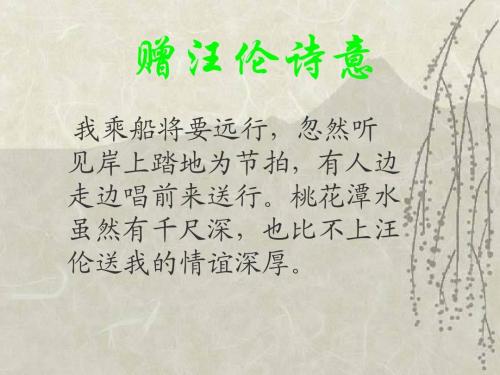 赠汪伦诗意
我乘船将要远行，忽然听
见岸上踏地为节拍，有人边
走边唱前来送行。桃花潭水
虽然有千尺深，也比不上汪
伦送我的情谊深厚。